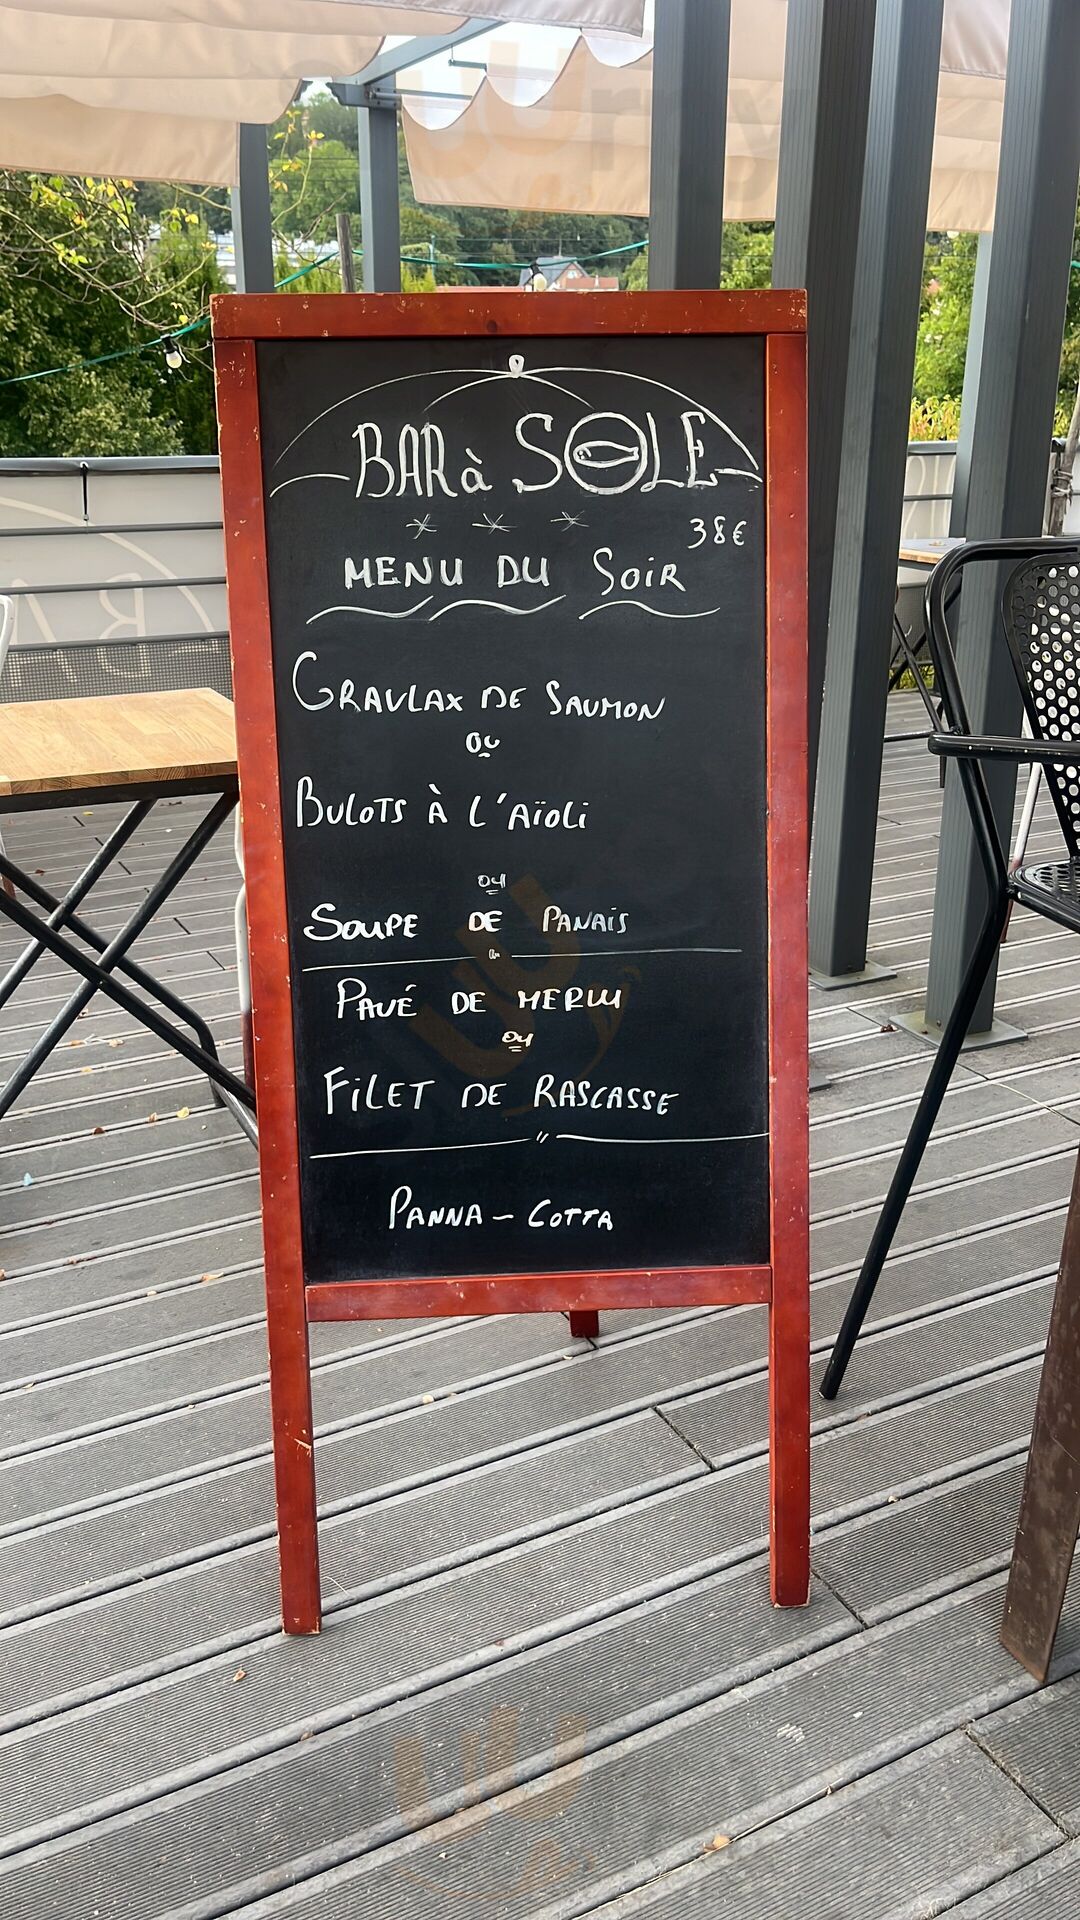 BAR à SOLE
38€
MENU DU SOIR
GRAVLAX DE SAUMON
OU
BULOTS À L'AÏOLI
OU
SOUPE DE PANAIS
PAVÉ DE MERLU
OU
FILET DE RASCASSE
PANNA - COTTA